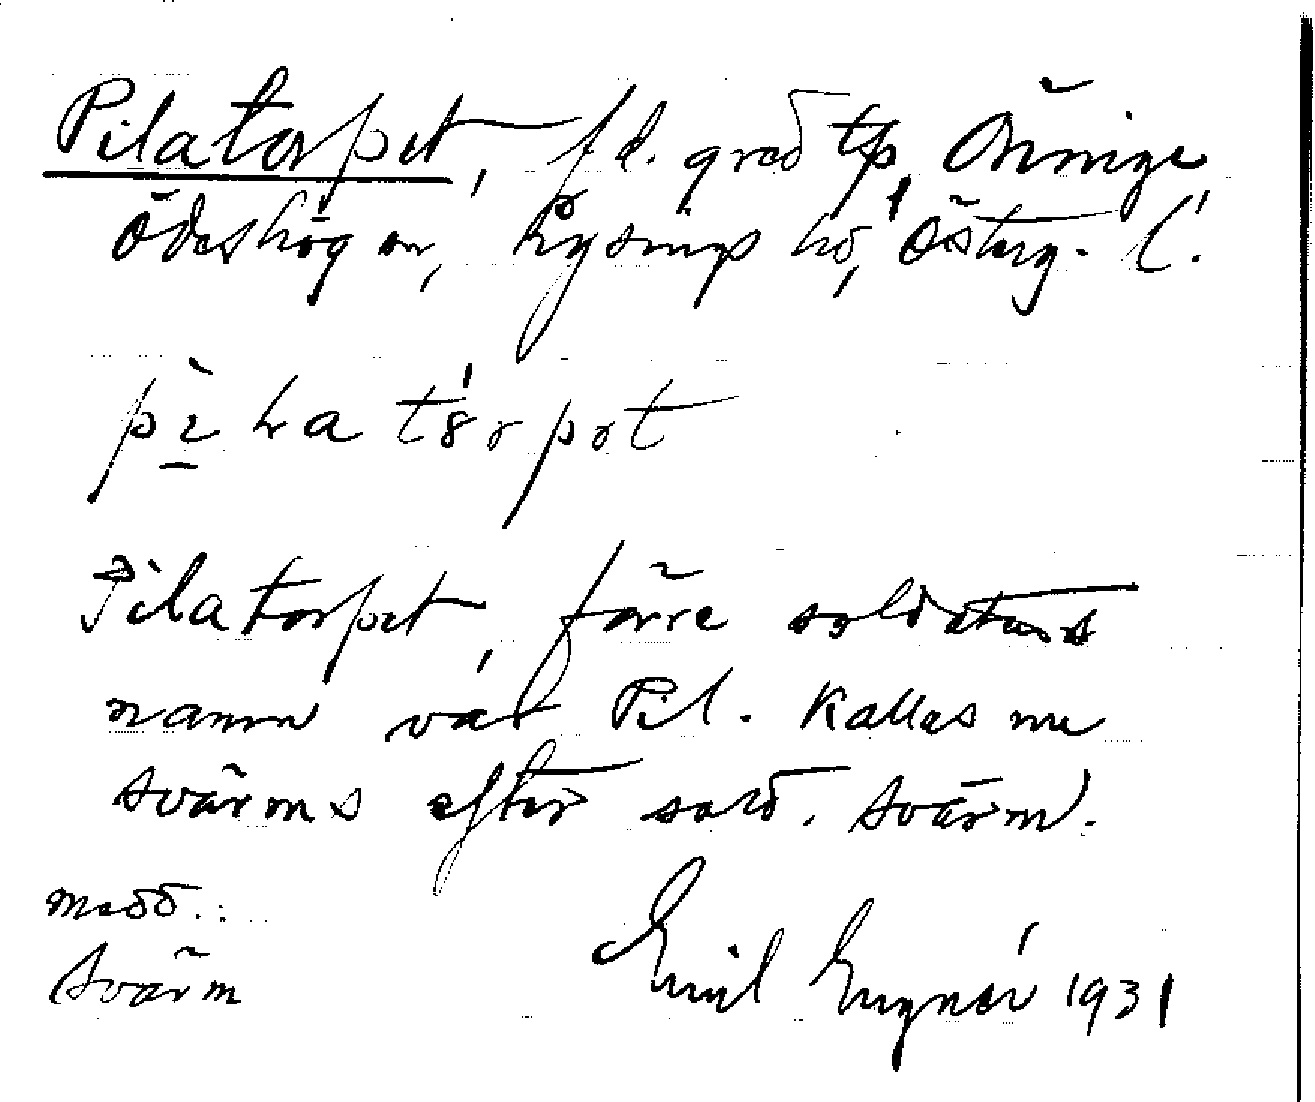 Pilatorpet, f d. gred tp, Öninge
Ödeshög sn, Lysings hd, Österg. l.
pìlatórpət
Pilatorpet, förre soldatens
namn var Pil. Kallas nu
Svärms efter sold. Svärm.
Medd.:
Svärm
Emil Engnér 1931